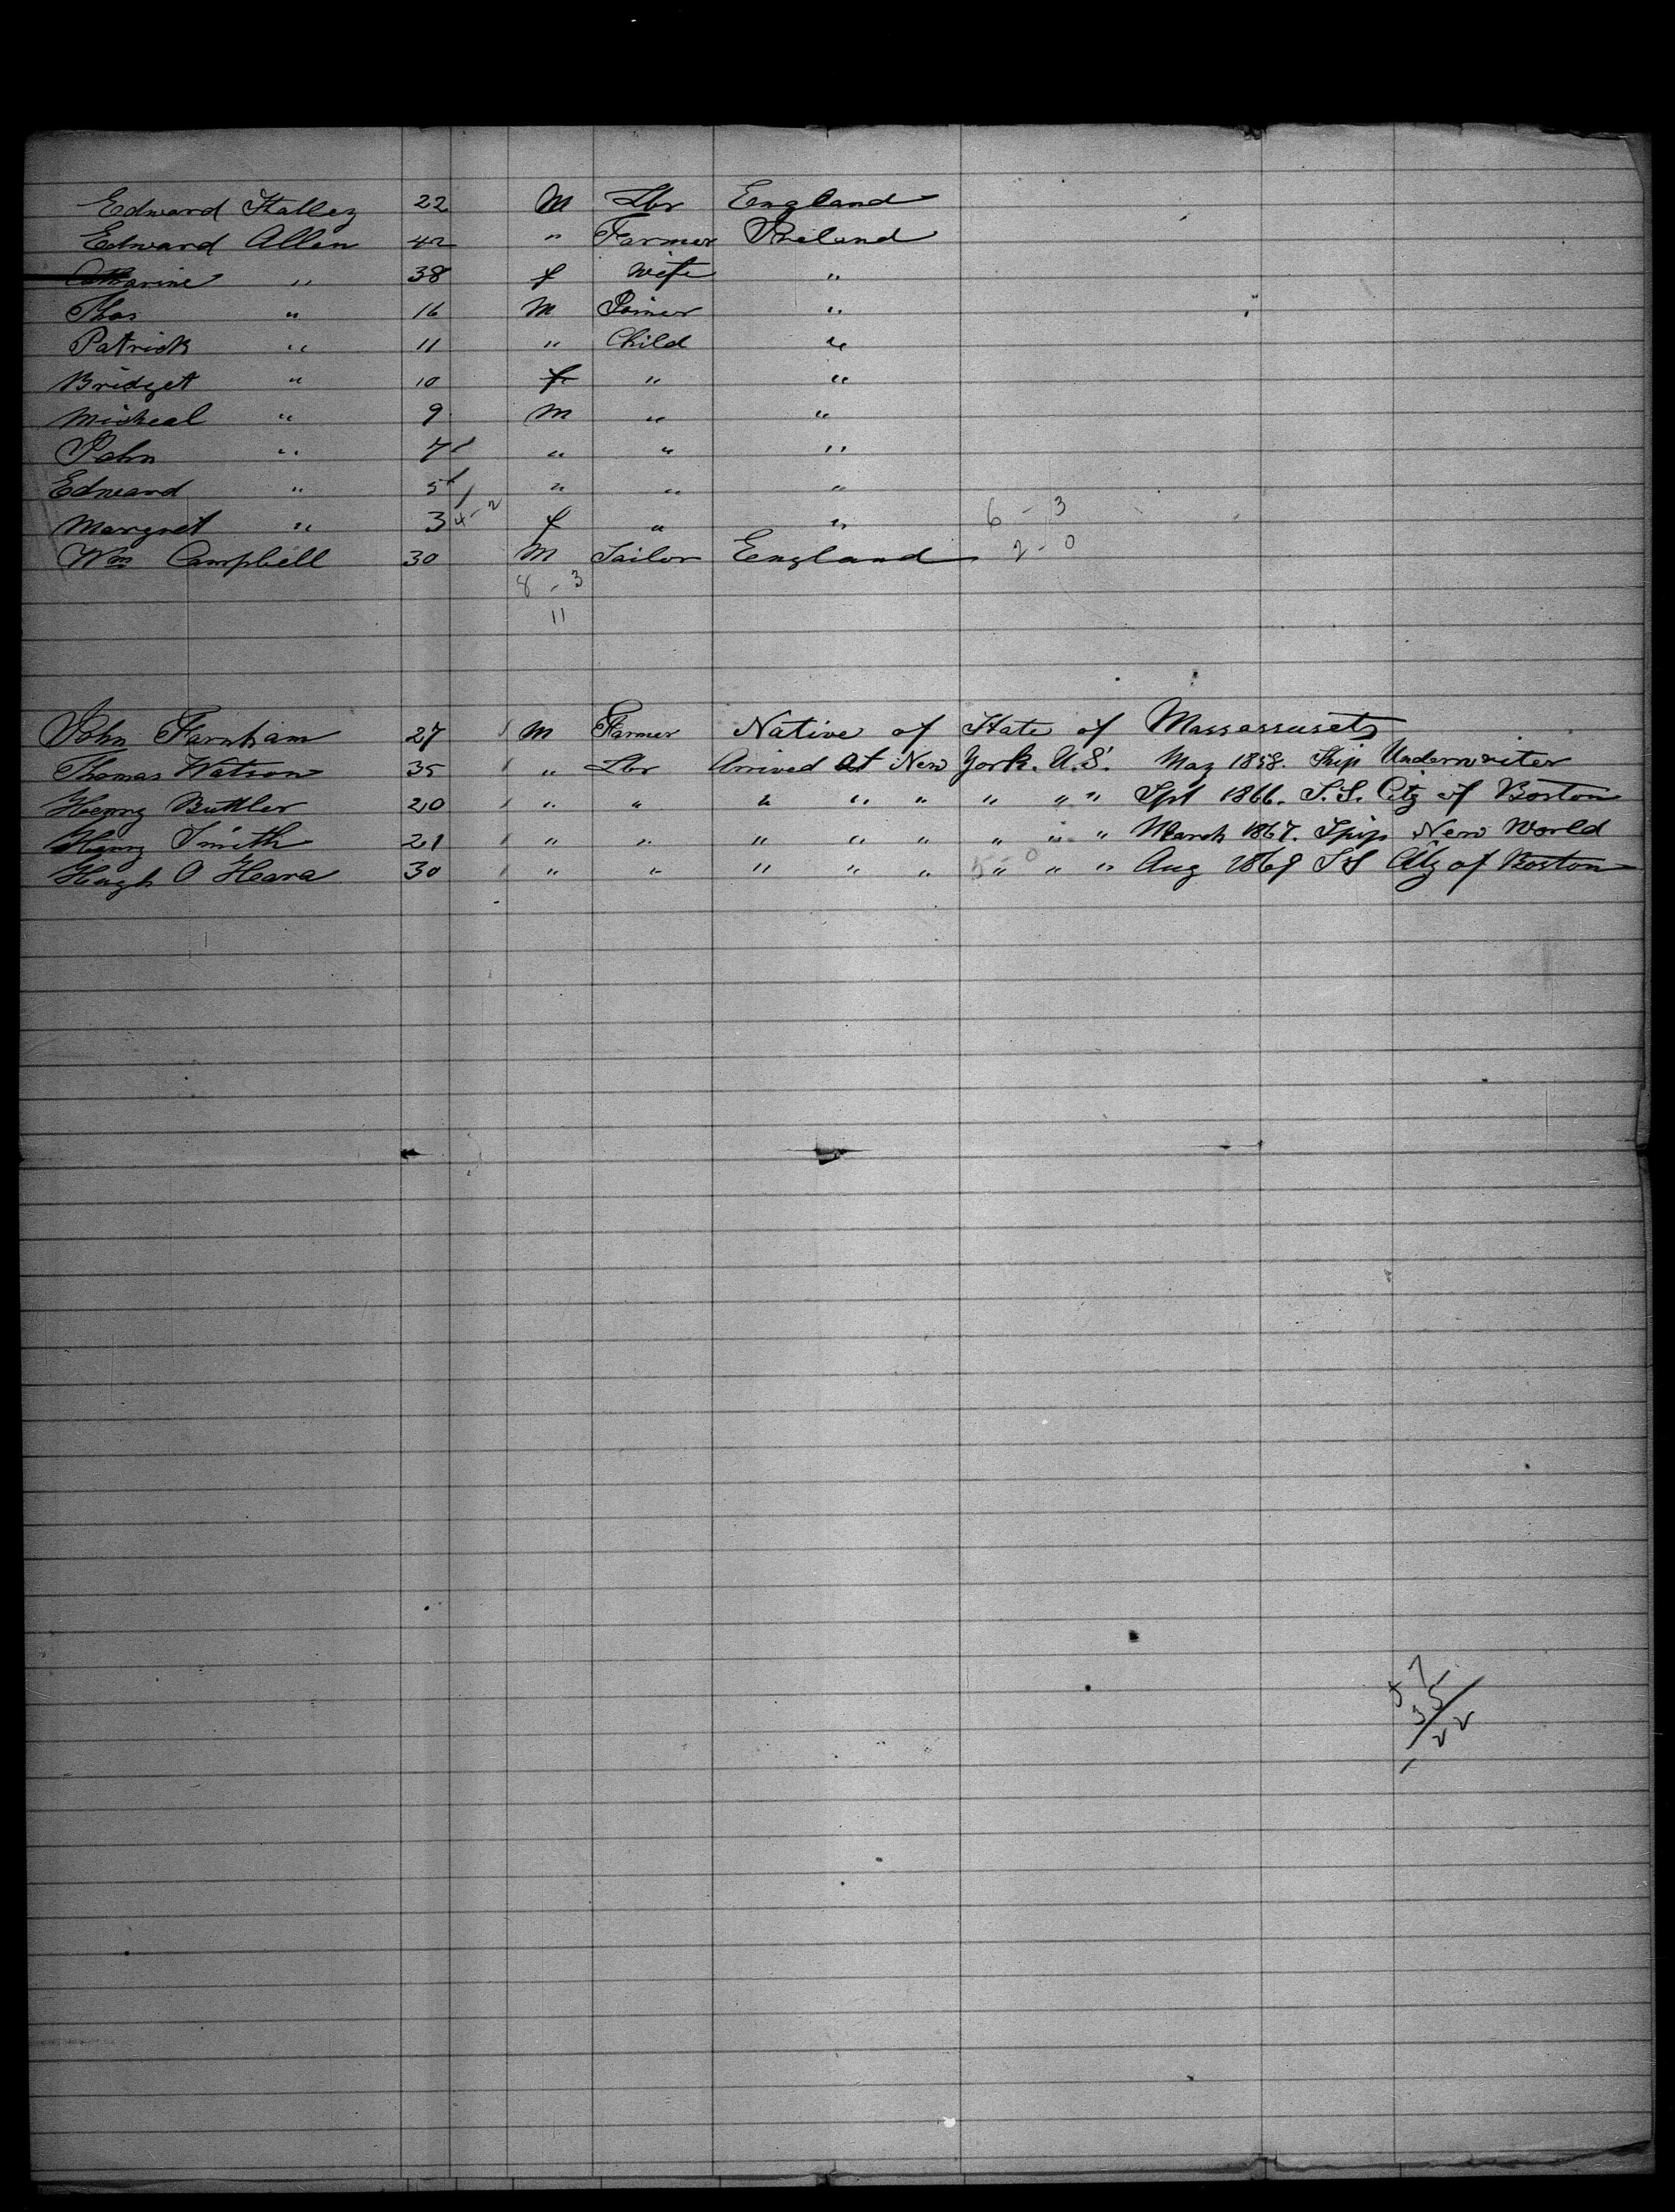 Edward Stalley 22 M Lbr England
Edward Allen 42 " Farmer Ireland
Catharine " 38 f Wife "
Thos " 16 M Joiner "
Patrick " 11 " Child "
Bridget " 10 f " "
Micheal " 9 M " "
John " 7 " " "
Edward " 5 " " "
Margret " 3 4-2 f " " 6 - 3
Wm Campbell 30 M Tailor England 2 - 0
8 - 3
11
John Farnham 27 M Farmer Native of State of Massassusets
Thomas Watson 35 " Lbr Arrived At New York. U.S. May 1858. Ship Underwriter
Henry Buttler 20 " " " " " " " " Spt 1866. S.S. City of Boston
Henry Smith 21 " " " " " " " " March 1867. Ship New World
Hugh O Heara 30 " " " " " 5-0 " " " Aug 1869 SS City of Boston
57
35
22